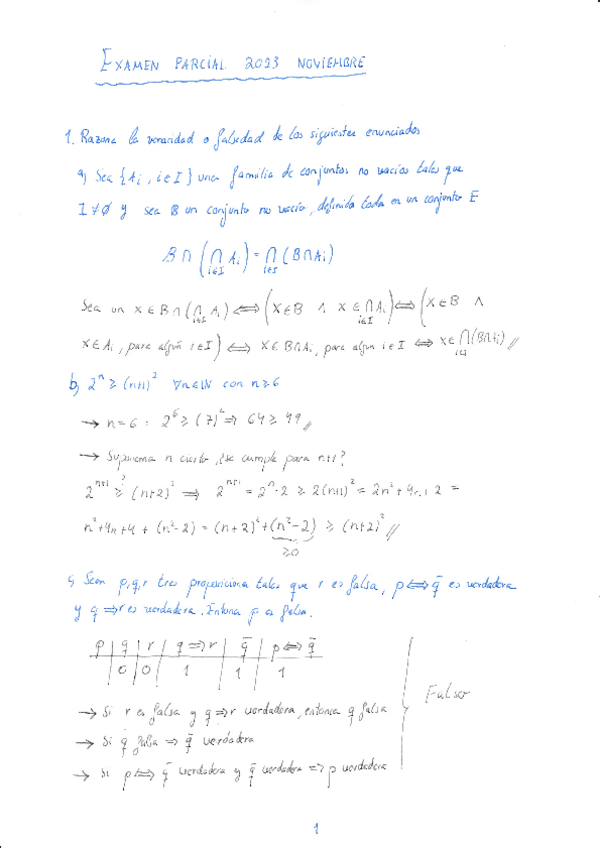 EXAMEN PARCIAL 2023 NOVIEMBRE
1. Razona la veracidad o falsedad de los siguientes enunciados
a) Sea {Ai, i∈I} una familia de conjuntos no vacíos tales que
I≠∅ y sea B un conjunto no vacío, definida cada en un conjunto E
B∩(∩i∈I Ai) = ∩i∈I (B∩Ai)
Sea un x∈B∩(∩i∈I Ai) ⟺ (x∈B ∧ x∈∩i∈I Ai) ⟺ (x∈B ∧
x∈Ai, para algún i∈I) ⟺ x∈B∩Ai, para algún i∈I ⟺ x∈∩i∈I(B∩Ai) //
b) 2^n ≥ (n+1)^2 ∀n∈ℕ con n≥6
→ n=6 : 2^6 ≥ (7)^2 ⇒ 64 ≥ 49 //
→ Supongamos n cierto, ¿se cumple para n+1?
2^(n+1) ≥? (n+2)^2 ⇒ 2^(n+1) = 2^n·2 ≥ 2(n+1)^2 = 2n^2+4n+2 =
n^2+4n+4 + (n^2-2) = (n+2)^2 + (n^2-2) ≥ (n+2)^2 //
≥0
c) Sean p,q,r tres proposiciones tales que r es falsa, p⟺q̄ es verdadera
y q ⇒ r es verdadera. Entonces p es falsa.
p | q | r | q ⇒ r | q̄ | p ⟺ q̄
0 | 0 | 1 | 1 | 1
→ Si r es falsa y q ⇒ r verdadera, entonces q falsa
→ Si q falsa ⇒ q̄ verdadera
→ Si p ⟺ q̄ verdadera y q̄ verdadera ⇒ p verdadera
Falso
1